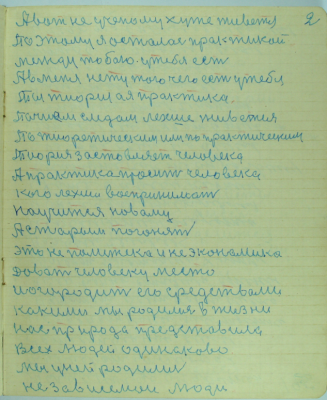 2
А вот не ученому хуже живется
Поэтому я осталас практикой
Между тобою утебя ест
А в меня нету того чего ест утебя
Ты тиория а я практика
По чием следам лехше живется
По тиоретическим им по практическим
Тиория застовляет человека
А практика просит человека
Кого лехши воспринимат
Научится новаму
А старым погонят
Это не политека и не экономика
Доват человеку место
изогородит его средствами
какими мы родимся в жизни
нас природа представила
Всех людей одинаково
Мы у ней родими
не зависемои люди